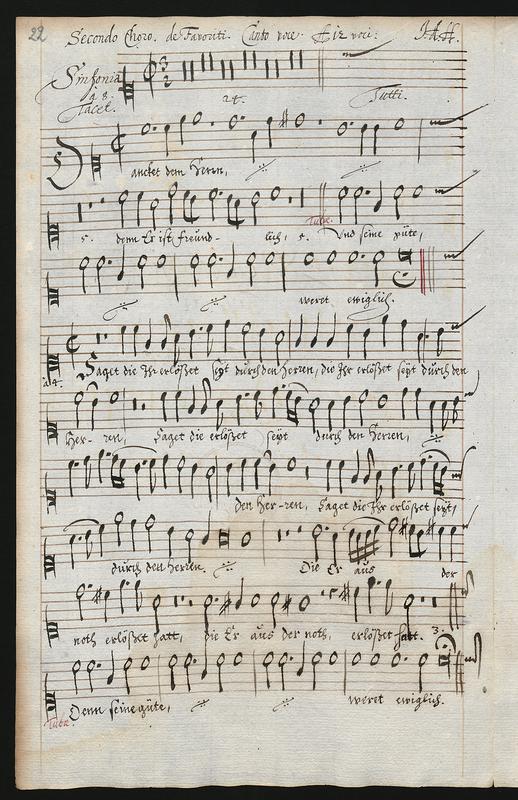 22 Secondo Choro. de Favoriti. Canto voce.
Sinfonia
à 8.
Tacet.
24. Tutti.
Dancket dem Herrn,
5. denn Er ist freund- lich, Und seine güte,
weret ewiglich.
Saget die Ihr erlößet seyt durch den Herren, die Ihr erlößet seyt durch den
Her- ren, Saget die erlößet seyt durch den Herren,
den Her-ren, Saget die Ihr erlößet seyt,
durch den Herren. Die Er aus der
noth erlößet hatt, die Er aus der noth, erlößet hatt. 3.
Denn seine güte, weret ewiglich.